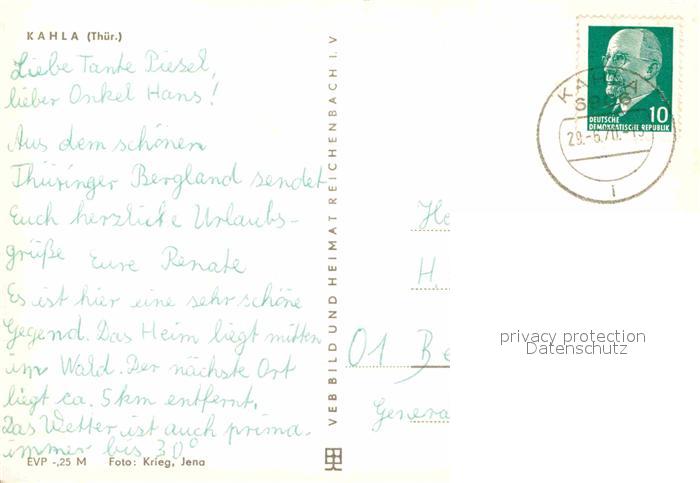 KAHLA (Thür.)
Liebe Tante Piesel,
lieber Onkel Hans!
Aus dem schönen
Thüringer Bergland sendet
Euch herzliche Urlaubs-
grüße Eure Renate
Es ist hier eine sehr schöne
Gegend. Das Heim liegt mitten
im Wald. Der nächste Ort
liegt ca. 5 km entfernt.
Das Wetter ist auch prima.
immer bis 30°
EVP -,25 M Foto: Krieg, Jena
VEB BILD UND HEIMAT REICHENBACH I. V
KAHLA
6906
29.-6.70.-15
i
10
DEUTSCHE
DEMOKRATISCHE REPUBLIK
He
H.
01 Be
Genera
privacy protection
Datenschutz